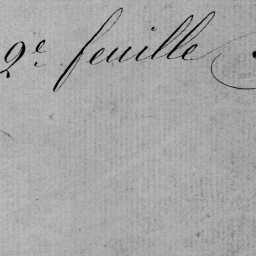 2e feuille